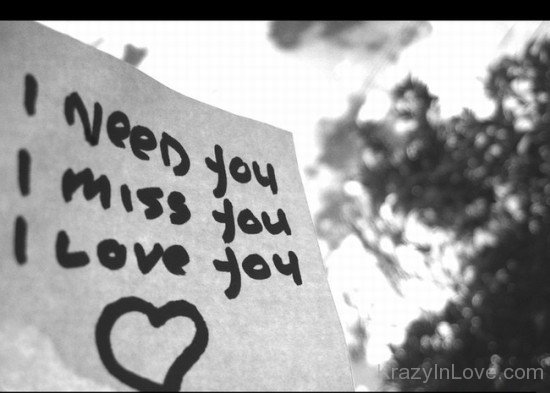 I Need you
I miss you
I Love you
KrazyInLove.com